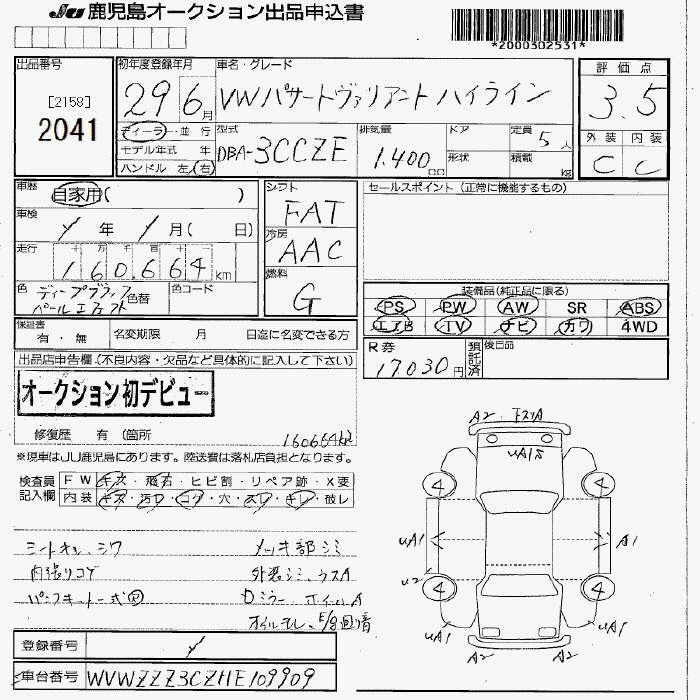 JU 鹿児島オークション出品申込書
*2000302531*
出品番号
[2158]
2041
初年度登録年月
29 6月
車名・グレード
VWパサートヴァリアント ハイライン
評価点
3.5
外装 内装
C C
ディーラー・並行
モデル年式 年
ハンドル 左・右
型式
DBA-3CCZE
排気量
1.400cc
ドア
形状
定員 5人
積載 kg
車歴
自家用( )
車検
年 月( 日)
走行
十 万 千 百 十 一
160.664 km
色
ディープブラック
パールエフェクト
色替
色コード
シフト
FAT
冷房
AAC
燃料
G
セールスポイント (正常に機能するもの)
装備品(純正品に限る)
PS PW AW SR ABS
エアB TV ナビ カワ 4WD
保証書
有・無
名変期限 月 日迄に名変できる方
R券
17030円
預託済
後日品
出品店申告欄(不良内容・欠品など具体的に記入して下さい)
オークション初デビュー
修復歴 有 (箇所
160664km
※現車はJU鹿児島にあります。陸送費は落札店負担となります。
検査員記入欄
FW キズ・飛石・ヒビ割・リペア跡・X要
内装 キズ・汚ワ・コゲ・穴・スレ・キレ・破レ
シートスレ、シワ
内張りコゲ
メッキ部シミ
外装シミ、ウスA
Dミラー・ホイールA
A2 下スリA
uA1
4 4
uA1 A1
u2
4 4
uA1 uA1
A2 A2
登録番号
車台番号
WVWZZZ3CZHE109909